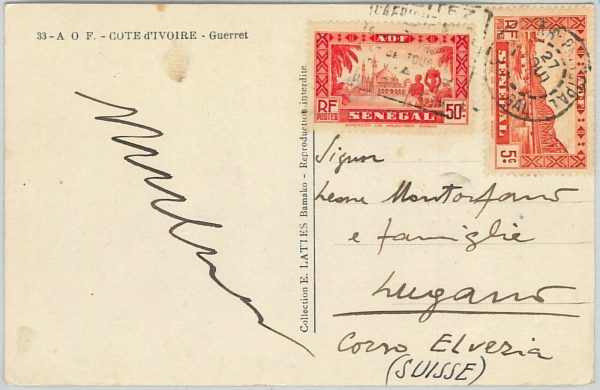 33 - A O F. - COTE d'IVOIRE - Guerret
Collection E. LATIES Bamako - Reproduction interdite
AOF
RF
POSTES
50c
SENEGAL
RF
SENEGAL
5c
27
Signor
Leone Montorfano
e famiglie
Lugano
Corso Elvezia
(SUISSE)